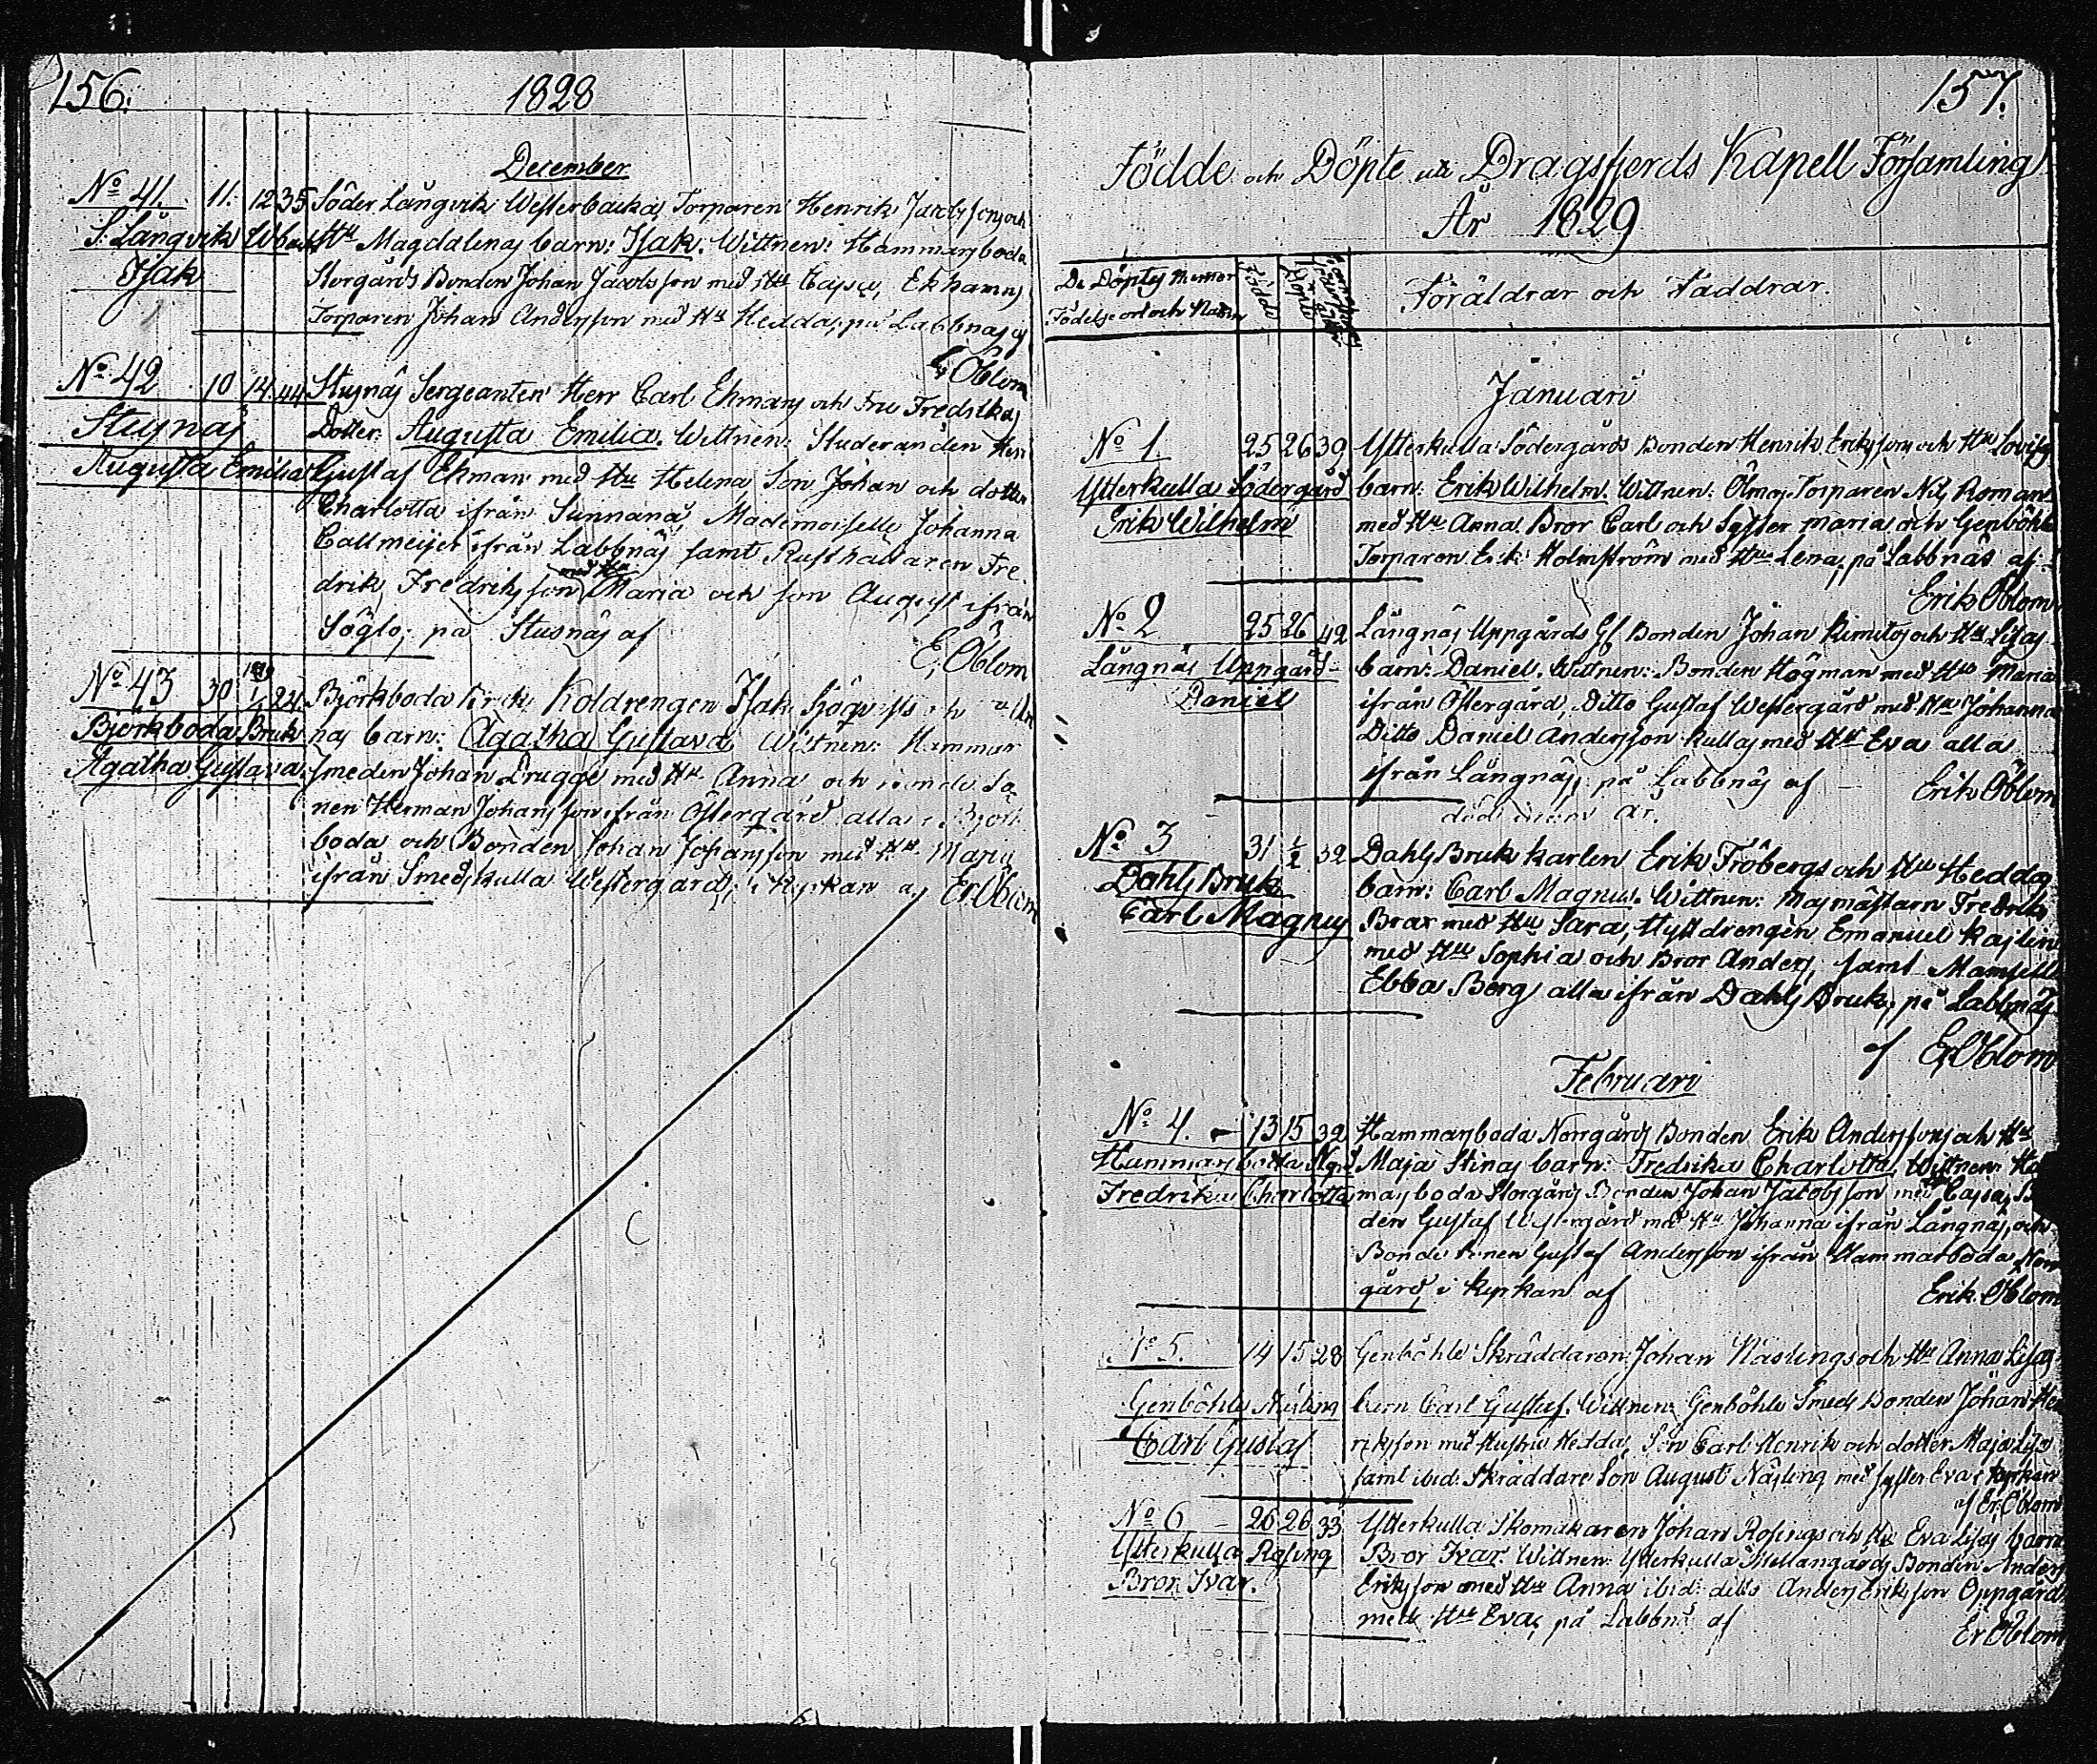 156.
1828
December
No 41. 11. 12 35 Söder Långvik Westerbacka Torparen Henrik Jacobssons och
S. Långvik Wbacka Hu Magdalenas barn: Isak. Wittnen: Hammarsboda
Isak
Storgårds Bonden Johan Jacobsson med Hu Cajsa, Ekhamns
Torparen Johan Andersson med Hu Hedda, på Labbnäs af
Er Öblom
No 42 10 14. 44. Stusnäs Sergeanten Herr Carl Ekmans och Fru Fredrikas
Stusnäs
Dotter: Augusta Emilia. Wittnen: Studeranden Herr
Augusta Emilia Gustaf Ekman med Hu Helena, Son Johan och dotter
Charlotta ifrån Sunnanå, Mademoiselle Johanna
Callmeijer ifrån Labbnäs samt Rusthållaren Fre-
drik Fredriksson med Hu Maria och son August ifrån
Söglo; på Stusnäs af
E. Öblom
No 43 30 1/1 24. Björkboda Bruks Koldrengen Isak Sjöqvists och
Björkboda Bruk nas barn: Agatha Gustava Wittnen: Hammar
Agatha Gustava. smeden Johan Drugge med Hu Anna och Bonde So-
nen Herman Johansson ifrån Östergård alla i Björk
boda och Bonden Johan Johansson med Hu Maria
ifrån Smedskulla Westergård; i Kyrkan af Er Öblom
157.
Födde och Döpte uti Dragsfjerds Kapell Församling
År 1829
De Döptes Numror
Födelse ort och Namn
Födde
Döpte
Föräldrar och Faddrar.
Januari
No 1. 25 26 39 Ytterkulla Södergårds Bonden Henrik Erikssons och Hu Lovisas
Ytterkulla Södergård barn: Erik Wilhelm. Wittnen: Ölmos Torparen Nils Roman
Erik Wilhelm med Hu Anna, Bror Carl och Syster Maria och Genböhle
Torparen Erik Holmström med Hu Lena, på Labbnäs af
Erik Öblom
No 2 25 26 42 Långnäs Uppgårds Bonden Johan Kimitos och Hu Lisas
Långnäs Uppgård barn: Daniel. Wittnen: Bonden Högman med Hu Maria
Daniel ifrån Östergård, Ditto Gustaf Westergård med Hu Johanna
Ditto Daniel Andersson Kullas med Hu Eva alla
ifrån Långnäs; på Labbnäs af Erik Öblom
död år.
No 3 31 1/2 32 Dahls Bruk karlen Erik Fröbergs och Hu Heddas
Dahls Bruk barn: Carl Magnus. Wittnen: Masmästarn Fredrik
Carl Magnus Brax med Hu Sara, Hyttdrengen Emanuel Kajlen
med Hu Sophia och Bror Anders, samt Mamsell
Ebba Berg alla ifrån Dahls Bruk, på Labbnäs
af Er Öblom
Februari
No 4. 13 15 32 Hammarsboda Norrgårds Bonden Erik Anderssons och Hu
Hammarsboda Ngård Maja Stinas barn: Fredrika Charlotta Wittnen: Ham
Fredrika Charlotta marsboda Storgårds Bonden Johan Jacobsson med Cajsa, Bon
den Gustaf Westergård med Hu Johanna ifrån Långnäs, och
Bonde Sonen Gustaf Andersson ifrån Hammarboda Norr
gård, i Kyrkan af Erik Öblom
No 5. 14 15 28 Genböhle Skräddaren Johan Näslings och Hu Anna Lisas
Genböhle Näsling barn Carl Gustaf. Wittnen: Genböhle Smeds Bonden Johan Hen
Carl Gustaf riksson med Hustru Hedda, Son Carl Henrik och dotter Maja Lisa
samt ibid. Skräddare Son August Näsling med syster Eva i kyrkan
af Er. Öblom
No 6 26 26 33 Ytterkulla Skomakaren Johan Rosings och Hu Eva Lisas barn
Ytterkulla Rosing Bror Ivar. Wittnen: Ytterkulla Mellangårds Bonden Anders
Bror Ivar. Eriksson med Hu Anna ibid: ditto Anders Eriksson Oppgård
med Hu Eva, på Labbnäs af
Er Öblom